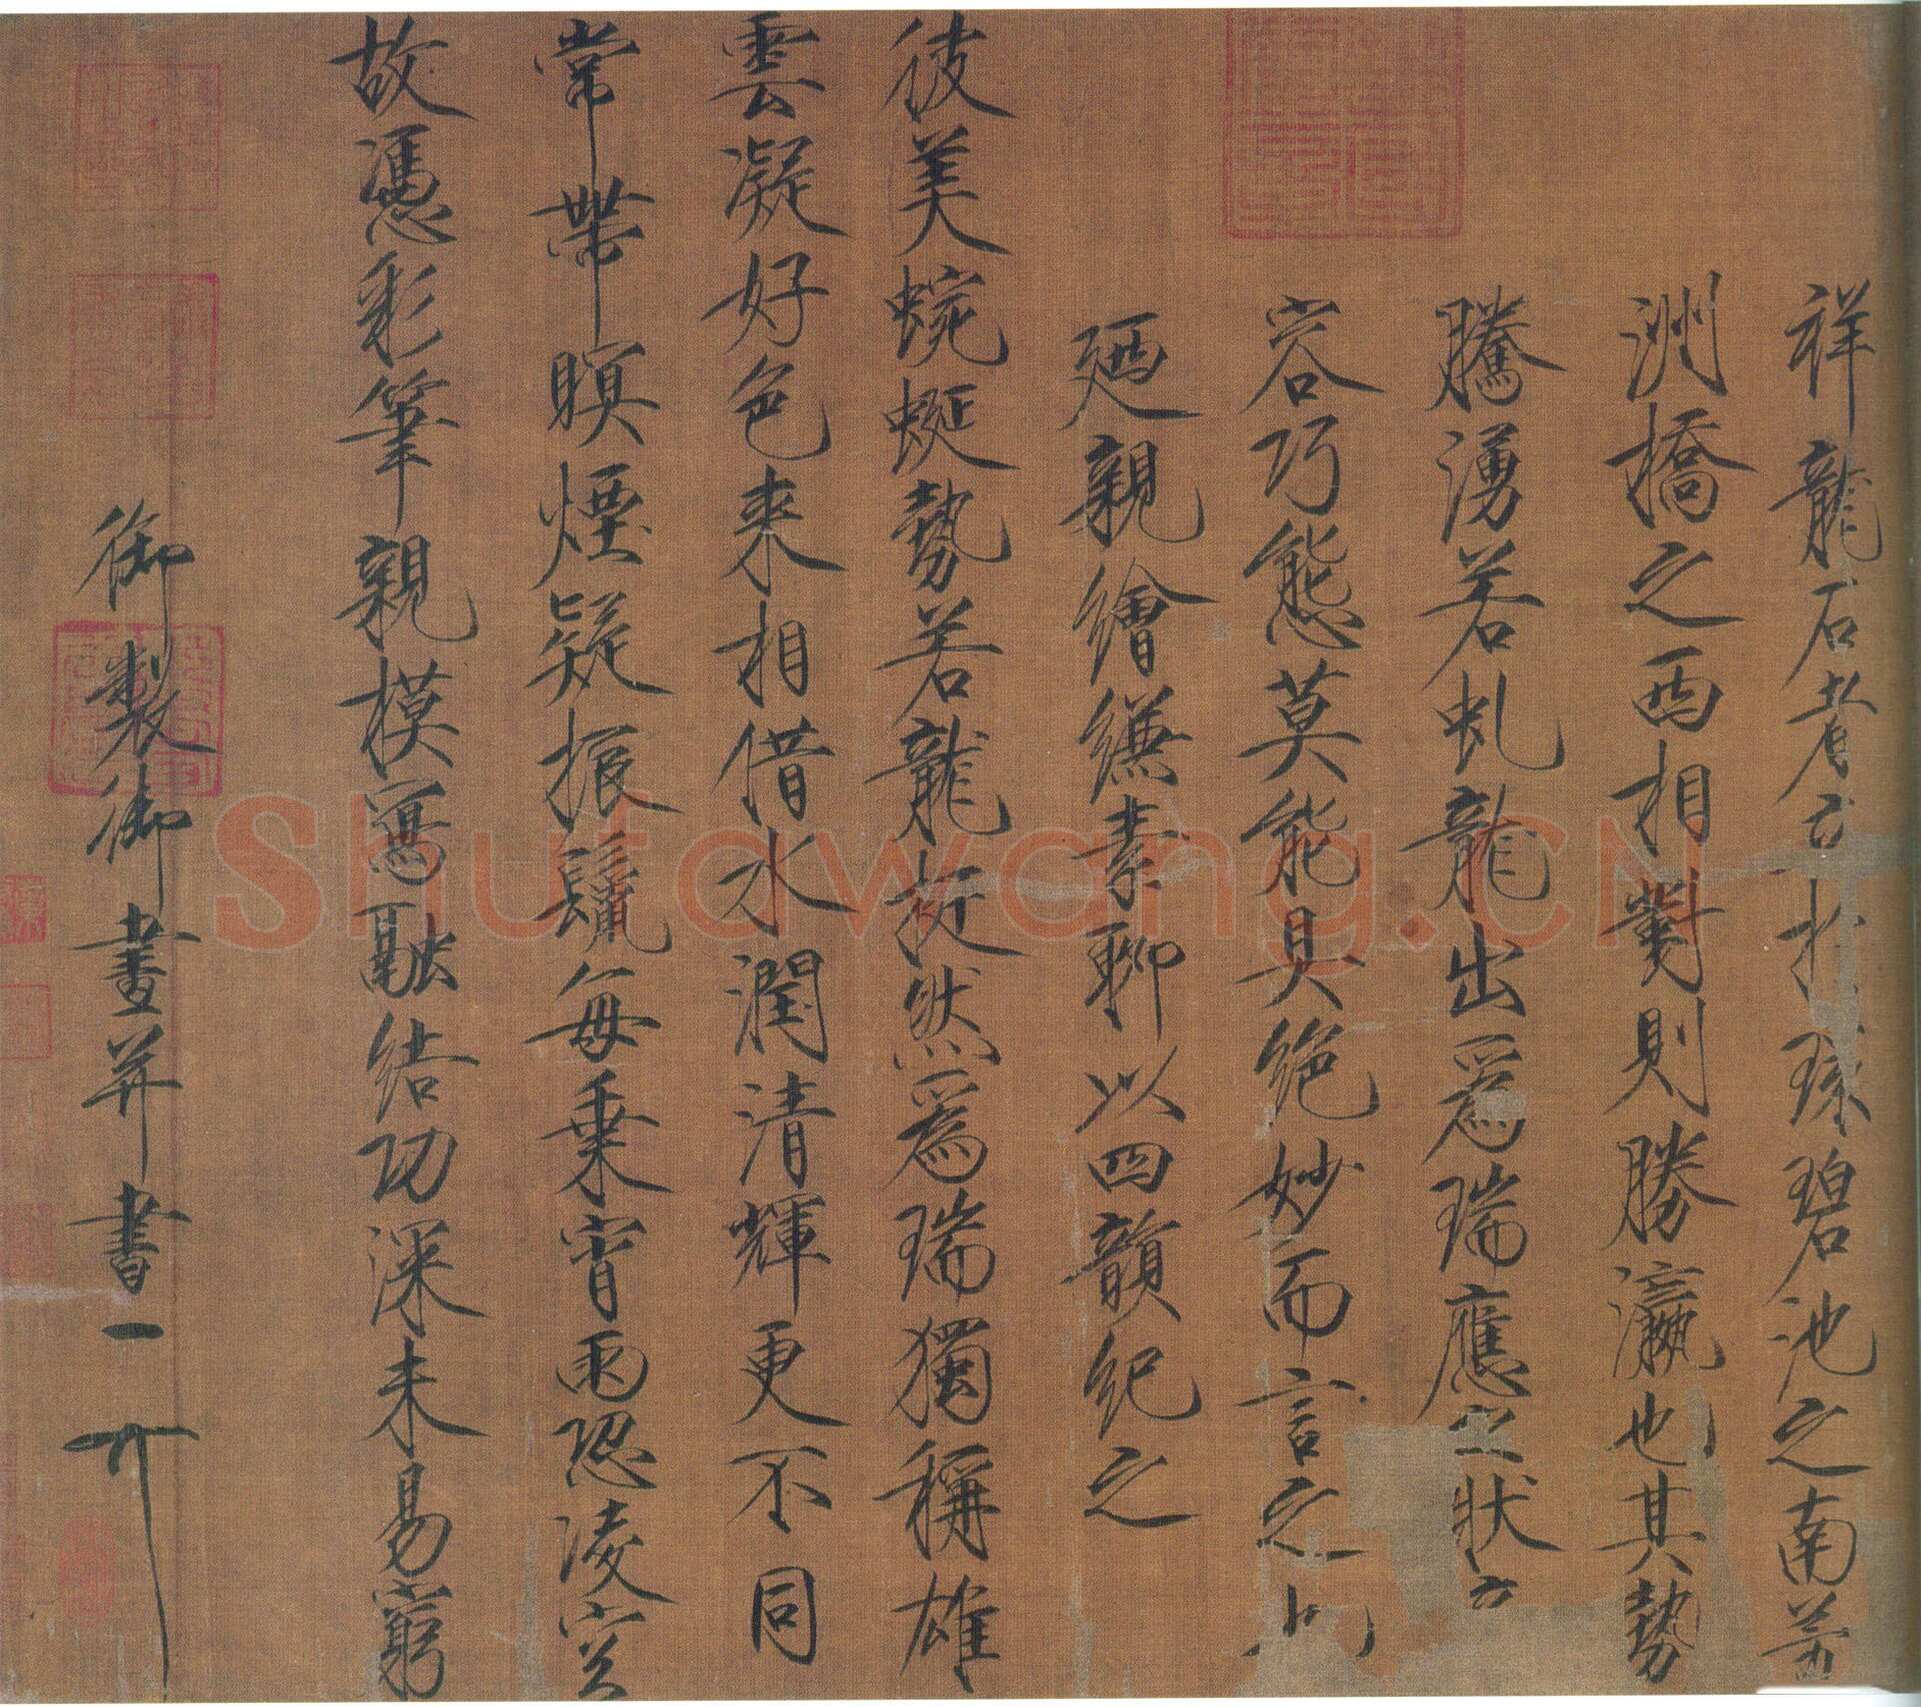 祥龍石者立於環碧池之南芳
洲橋之西相對則勝瀛也其勢
騰湧若虬龍出爲瑞應之狀
容巧態莫能具絶妙而言之也
廼親繪縑素聊以四韻紀之
彼美蜿蜒勢若龍挺然爲瑞獨稱雄
雲凝好色来相借水潤清輝更不同
常帶瞑煙疑振鬣每乗宵雨恐凌空
故憑彩筆親模寫融結功深未易窮
御製御畫并書
Shufawang.CN